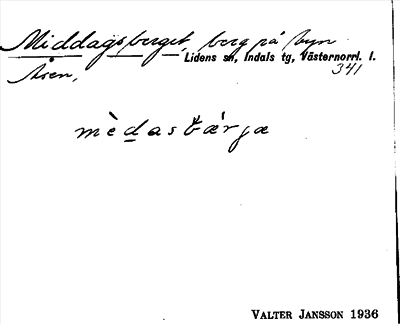 Middagsberget, berg på byn
Lidens sn, Indals tg, Västernorrl. l.
Åsen,
341
mèdasbárjæ
VALTER JANSSON 1936